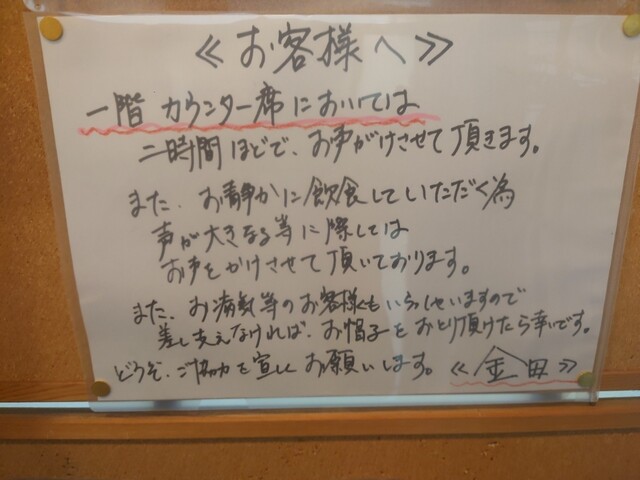 ≪お客様へ≫
一階 カウンター席においては
二時間ほどで、お声がけさせて頂きます。
また、お静かに飲食していただく為
声が大きなる等に際しては
お声をかけさせて頂いております。
また、お病気等のお客様くもいらっしゃいますので
差し支えなければ、お帽子をおとり頂けたら幸いです。
どうぞ、ご協力を宜しくお願いします。≪金田≫